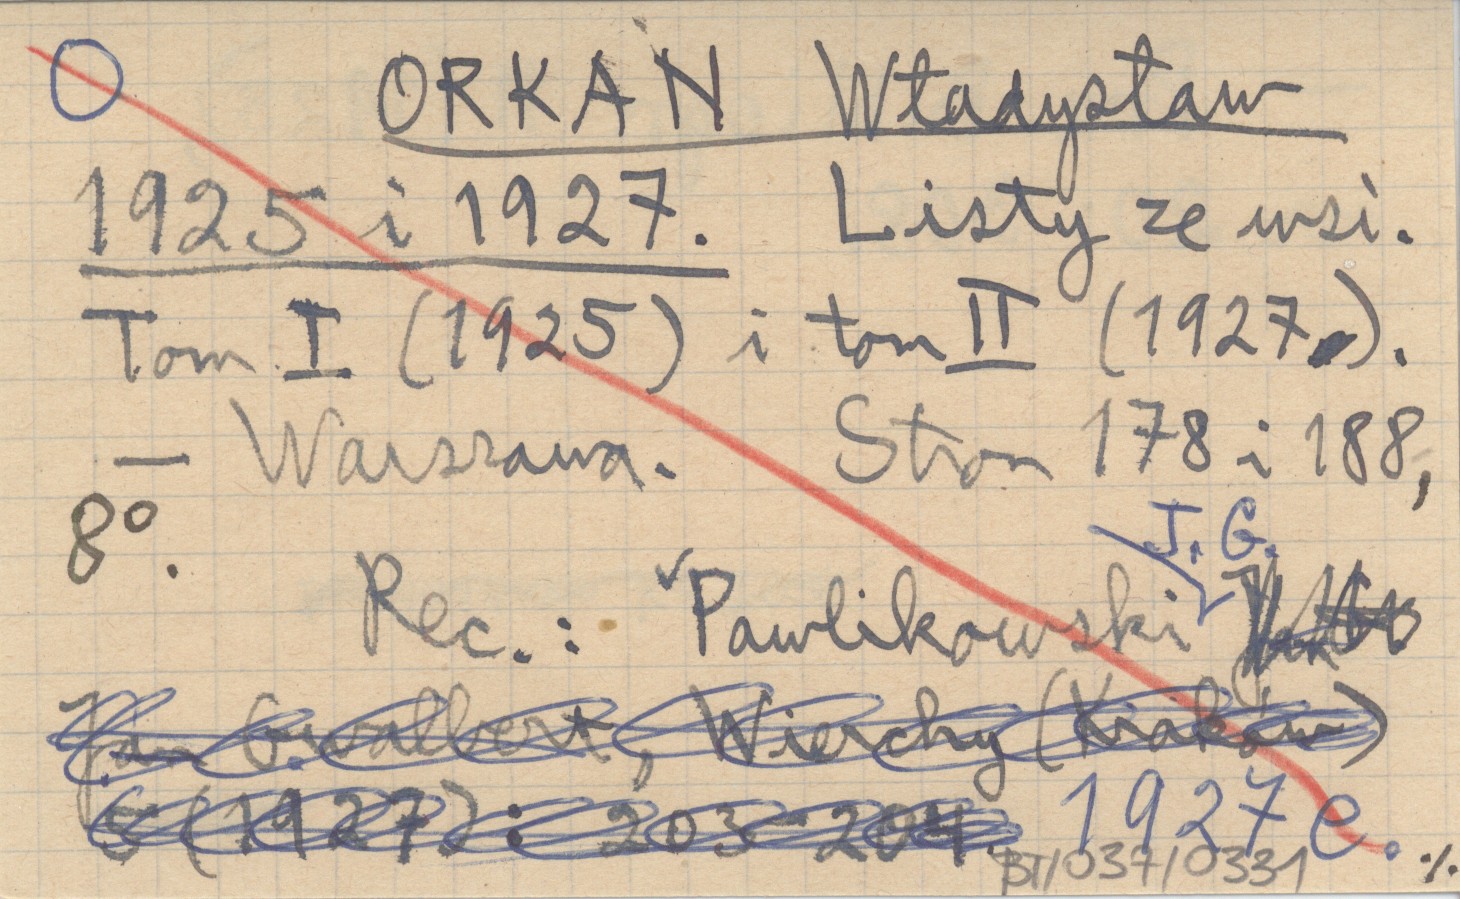 O ORKAN Władysław
1925 i 1927. Listy ze wsi.
Tom I (1925) i tom II (1927).
— Warszawa. Stron 178 i 188,
8°.
J. G.
Rec.: Pawlikowski
Jan Gwalbert, Wierchy (Kraków)
5 (1927): 203-204. 1927 e.
BT/037/0331 ./.